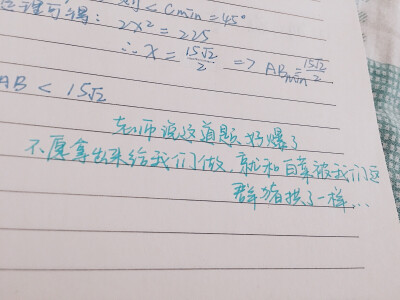 理可得: 则∠Cmin=45°
2x²=225
∴x=15√2/2 => ABmin=15√2/2
AB<15√2
老师说这道题好爆了
不愿拿出来给我们做,就和白菜被我们这
群猪拱了一样...